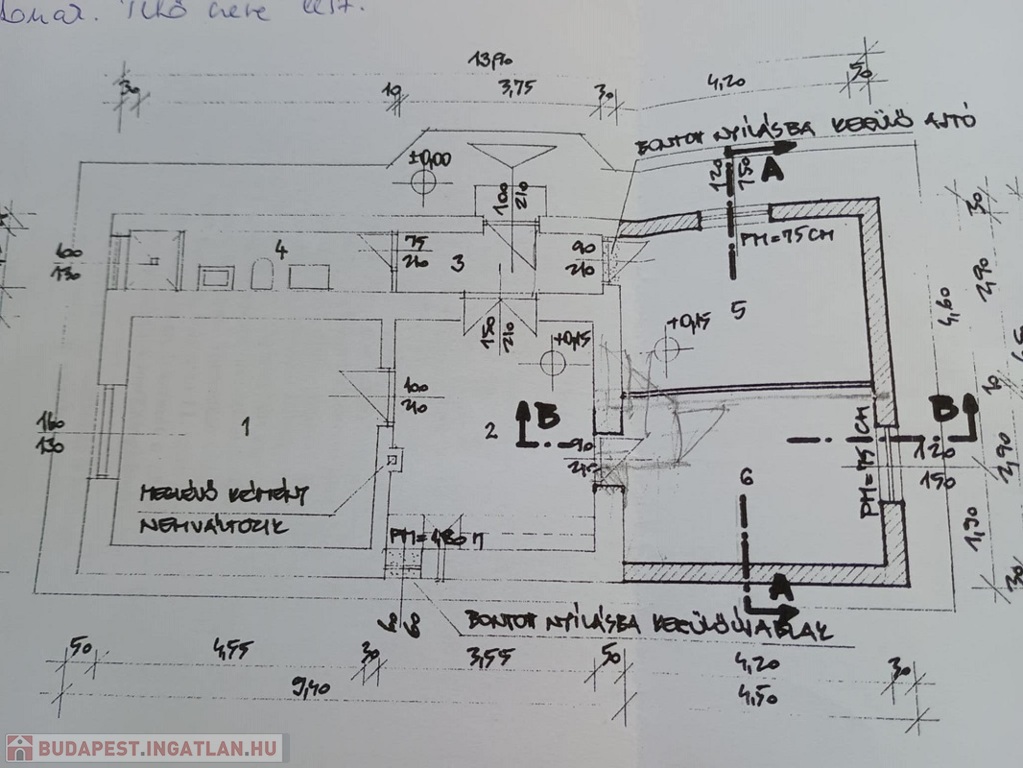 13,90
30
10
3,75
30
4,20
50
BONTOTT NYÍLÁSBA KERÜLŐ AJTÓ
±0,00
120
150
A
100
210
30
100
130
4
75
210
3
90
210
PM=75CM
5
2,90
4,60
150
210
+0,15
+0,15
10
160
130
1
100
210
2
B
90
B
PM=75CM
120
150
2,90
6
MEGLÉVŐ KÉMÉNY
NEM VÁLTOZIK
1,90
A
30
60
60
BONTOTT NYÍLÁSBA KERÜLŐ ÚJ ABLAK
50
4,55
30
3,55
50
4,20
30
9,40
4,50
BUDAPEST.INGATLAN.HU